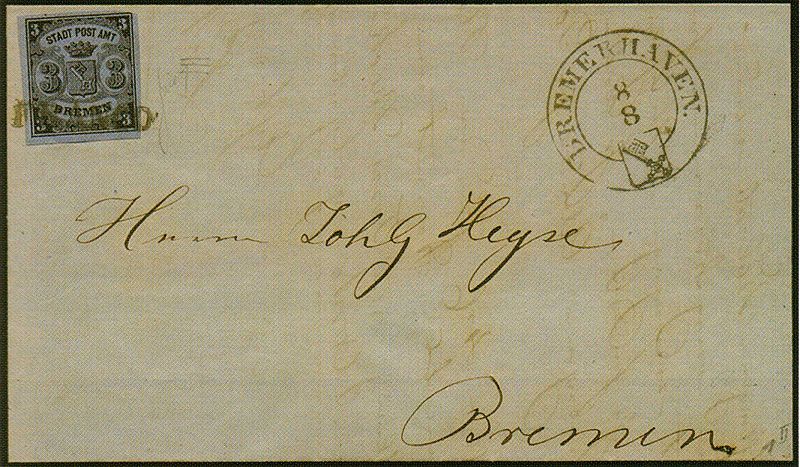 3 3
STADT POST AMT
3 3
BREMEN
3 3
BREMERHAVEN.
8
8
Herrn Joh G Heyse
Bremen